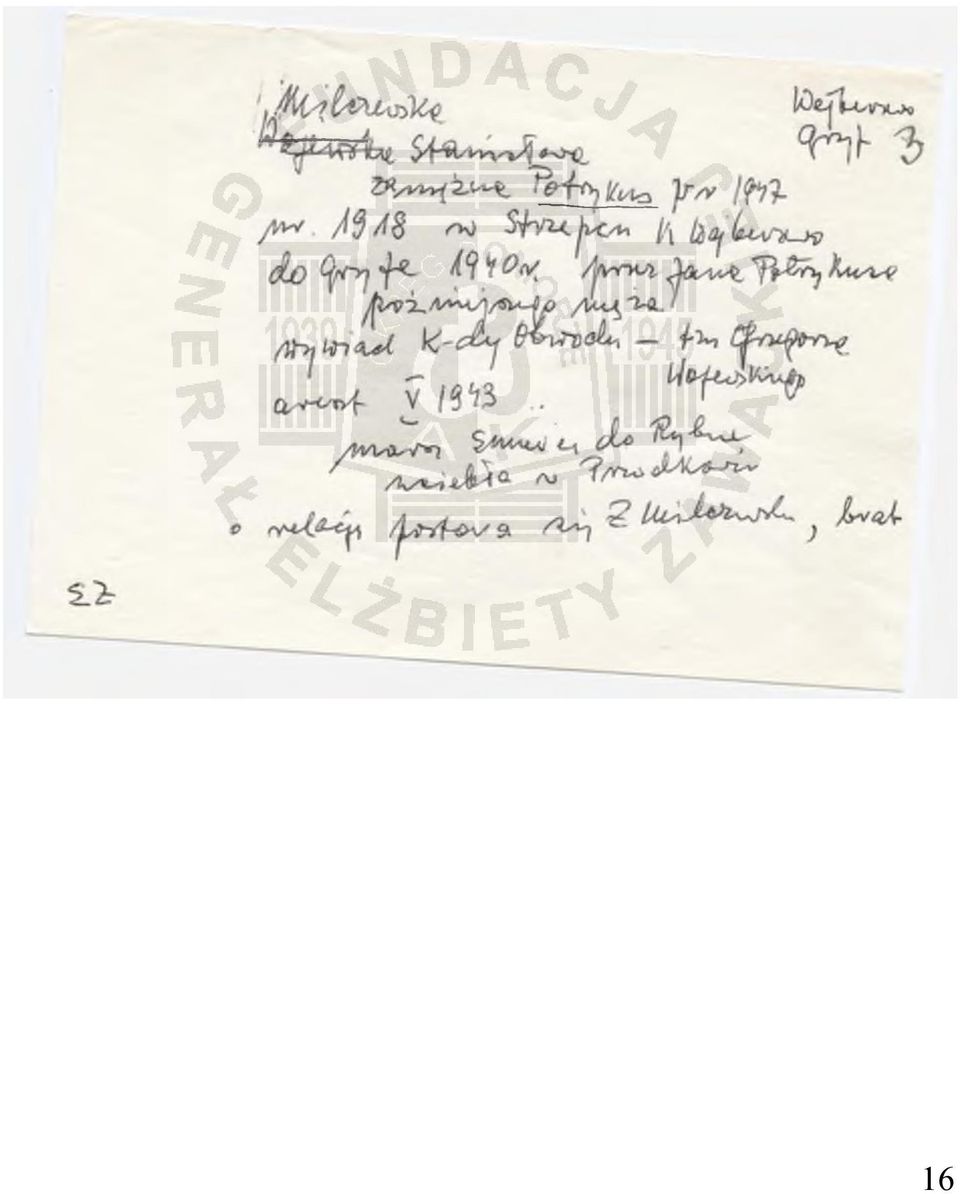 Milczewska
Wejherowo
Wajewska Stanisława
Gryf 3
zamężna Potrykus 1947
ur. 1918 w Strzepcu k Wejherowo
do Gryfa 1940r. przez Jana Potrykusa
późniejszego męża
wywiad K-dy Obwodu – tzn Grzegorza
Wojewskiego
areszt V 1943
marsz śmierci do Rybna
uciekła w Przodkowie
o relację postara się Z Milczewski, brat
EZ
FUNDACJA GENERAŁ ELŻBIETY ZAWACKIEJ
1939 1945
16